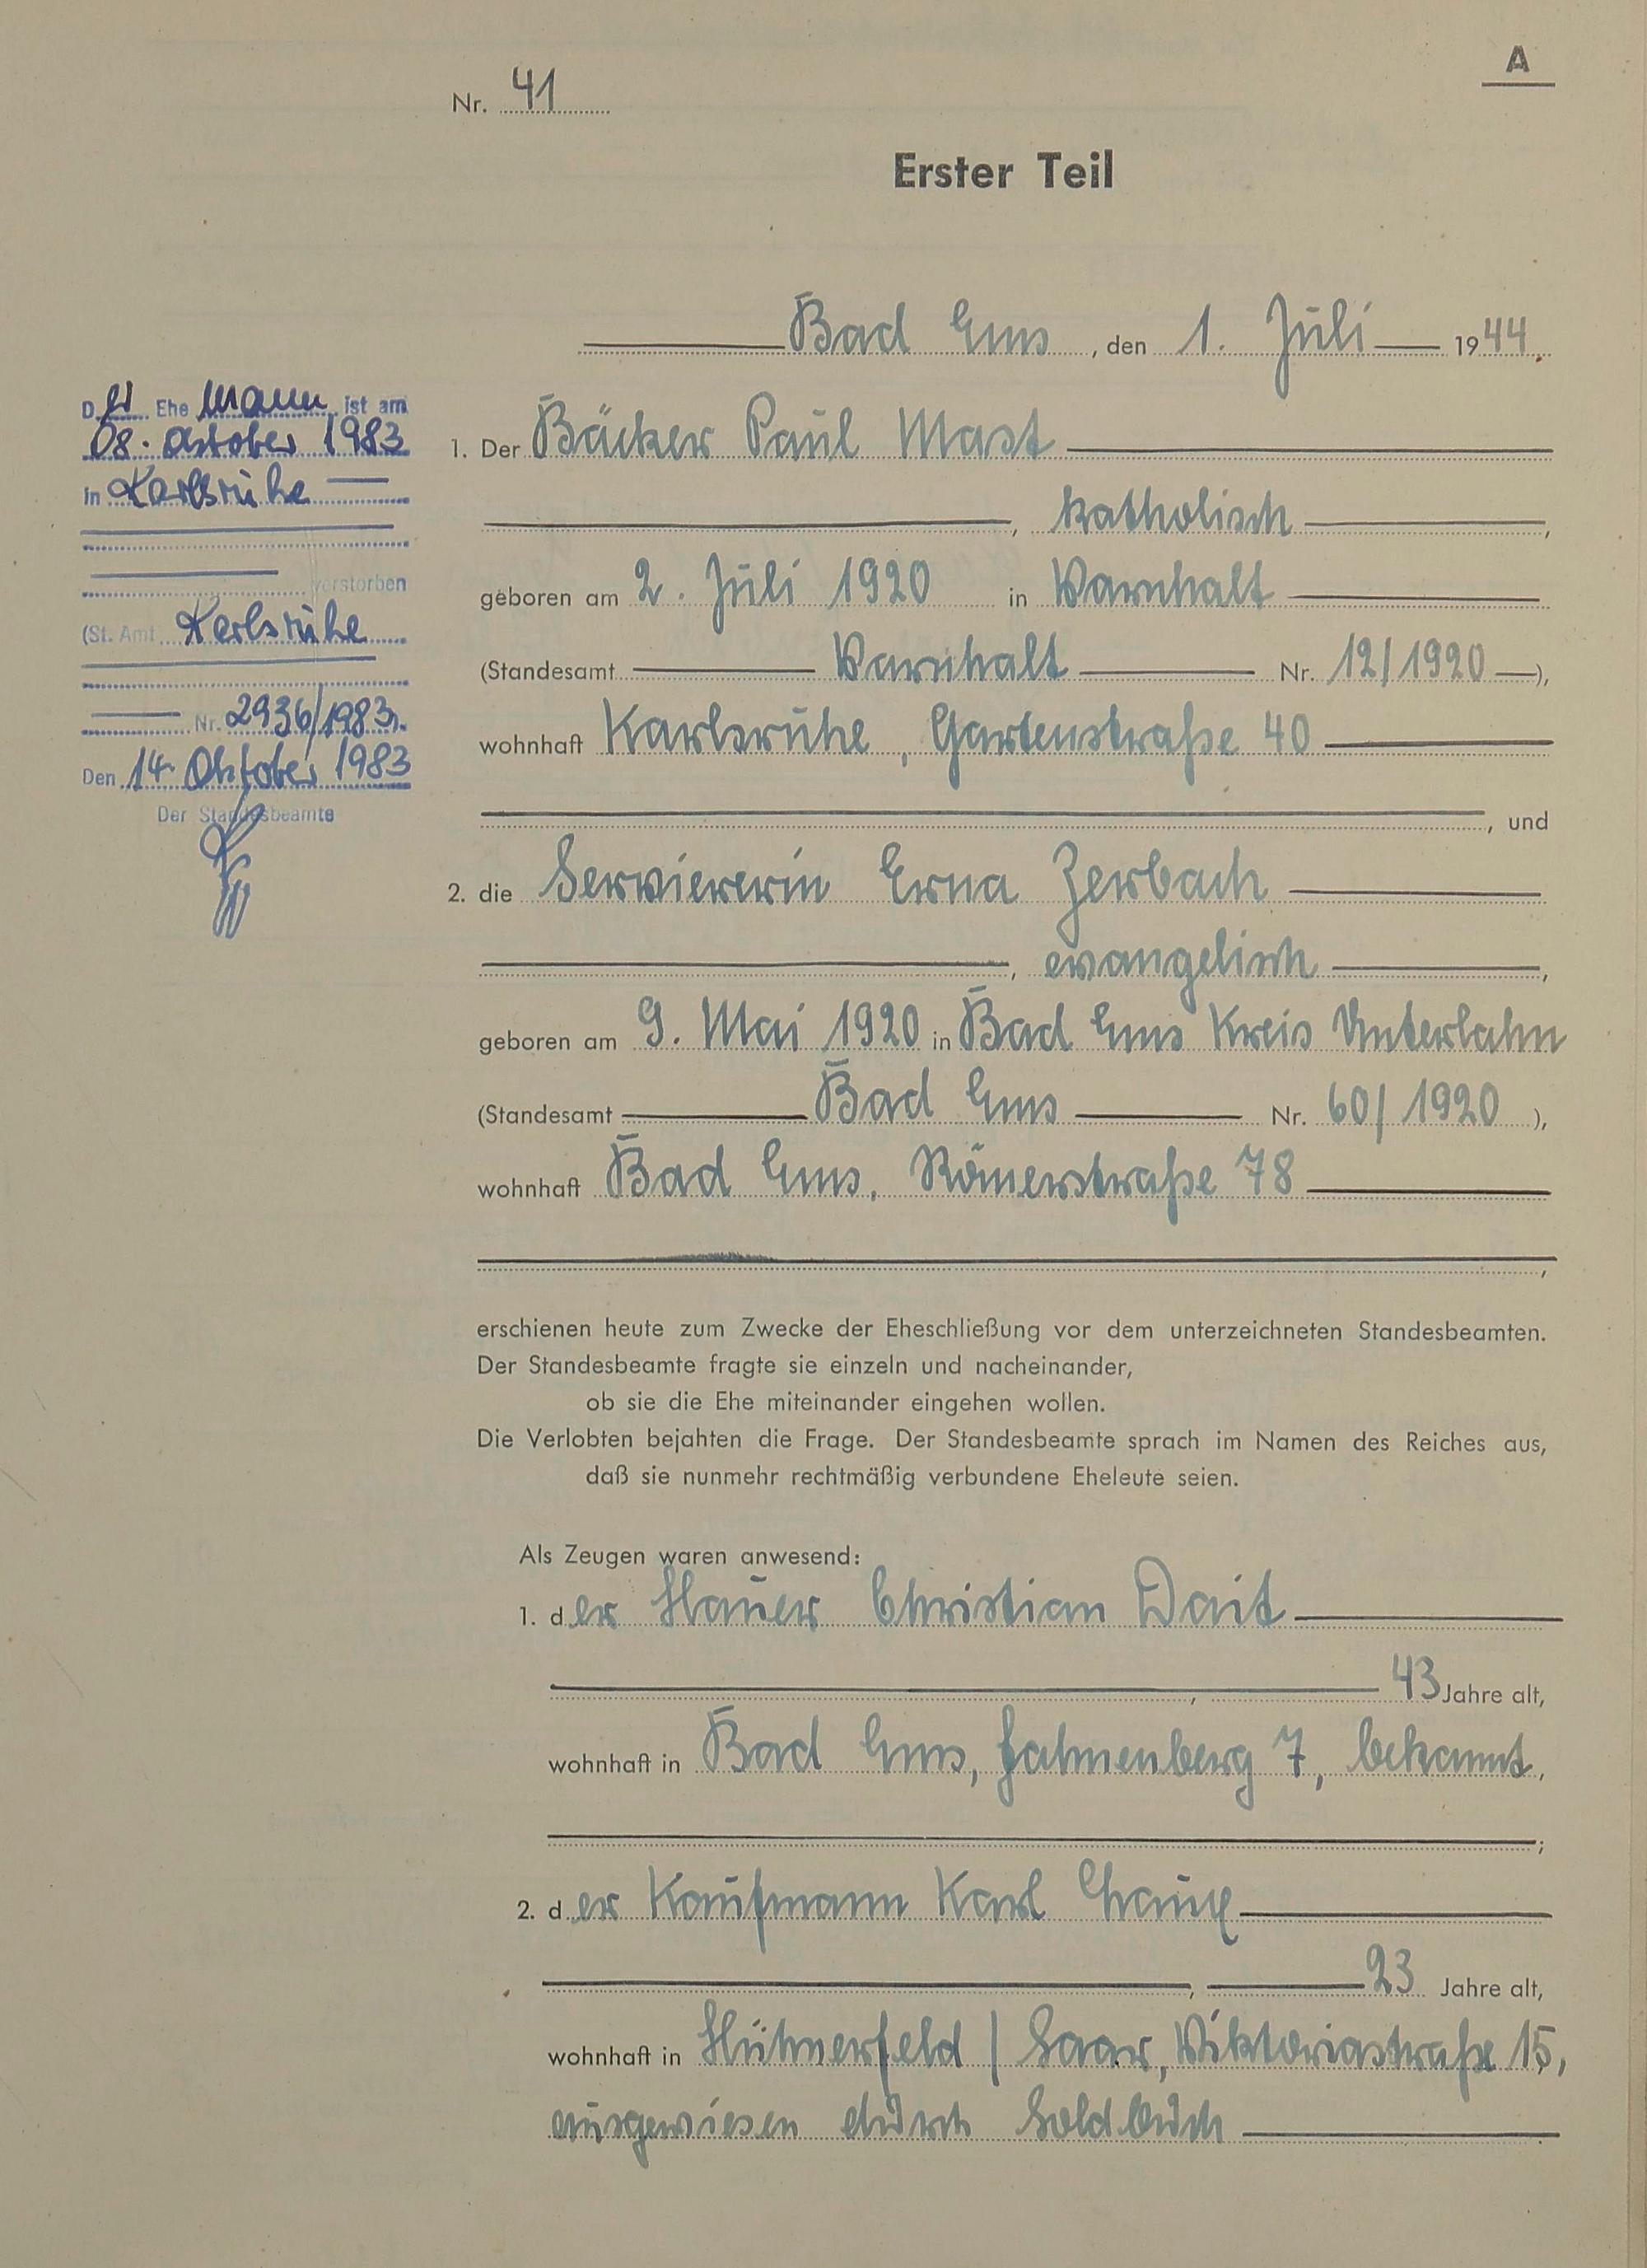 A
Nr. 41
Erster Teil
Bad Ems, den 1. Juli 1944.
Der Ehe Mann ist am
08. Oktober 1983
in Karlsruhe
verstorben
(St. Amt Karlsruhe
Nr. 2936/1983).
Den 14. Oktober 1983
Der Standesbeamte
1. Der Bäcker Paul Mast
, katholisch,
geboren am 2. Juli 1920 in Varnhalt
(Standesamt Varnhalt Nr. 12/1920),
wohnhaft Karlsruhe, Gartenstraße 40
, und
2. die Serviererin Erna Zerbach
, evangelisch,
geboren am 9. Mai 1920 in Bad Ems Kreis Unterlahn
(Standesamt Bad Ems Nr. 60/1920),
wohnhaft Bad Ems, Römerstraße 78
,
erschienen heute zum Zwecke der Eheschließung vor dem unterzeichneten Standesbeamten.
Der Standesbeamte fragte sie einzeln und nacheinander,
ob sie die Ehe miteinander eingehen wollen.
Die Verlobten bejahten die Frage. Der Standesbeamte sprach im Namen des Reiches aus,
daß sie nunmehr rechtmäßig verbundene Eheleute seien.
Als Zeugen waren anwesend:
1. der Hauer Christian Dait
, 43 Jahre alt,
wohnhaft in Bad Ems, Hahnenberg 7, bekannt,
;
2. der Kaufmann Karl
, 23 Jahre alt,
wohnhaft in Hühnerfeld / Saar, Viktoriastraße 15,
ausgewiesen durch Soldbuch